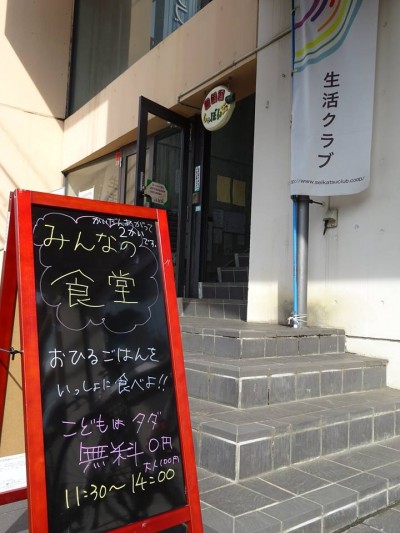 かいだんあがって
2かい
です。
みんなの
食堂
おひるごはんを
いっしょに食べよ!!
こどもは タダ
無料 0円
大人100円
11:30～14:00
生活クラブ